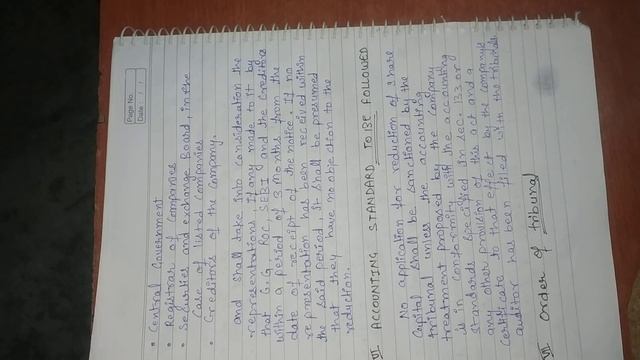 Page No.
Date / /
• Central Government
• Registrar of Companies
• Securities and exchange Board, in the
Case of listed Companies
• Creditors of the Company.
and shall take into Consideration the
representations, if any made to it by
that C.G, ROC, SEBI and the Creditors
within a period of 3 months from the
date of receipt of the notice. If no
representation has been received within
the said period, it shall be presumed
that they have no objection to the
reduction.
VI ACCOUNTING STANDARD TO BE FOLLOWED
No application for reduction of share
Capital shall be Sanctioned by the
tribunal unless the accounting
treatment proposed by the Company
is in Conformity with the accounting
Standards Specified in Sec. 133 or
any other provision of this act and a
Certificate to that effect by the Company's
auditor has been filed with the tribunal.
VII Order of tribunal